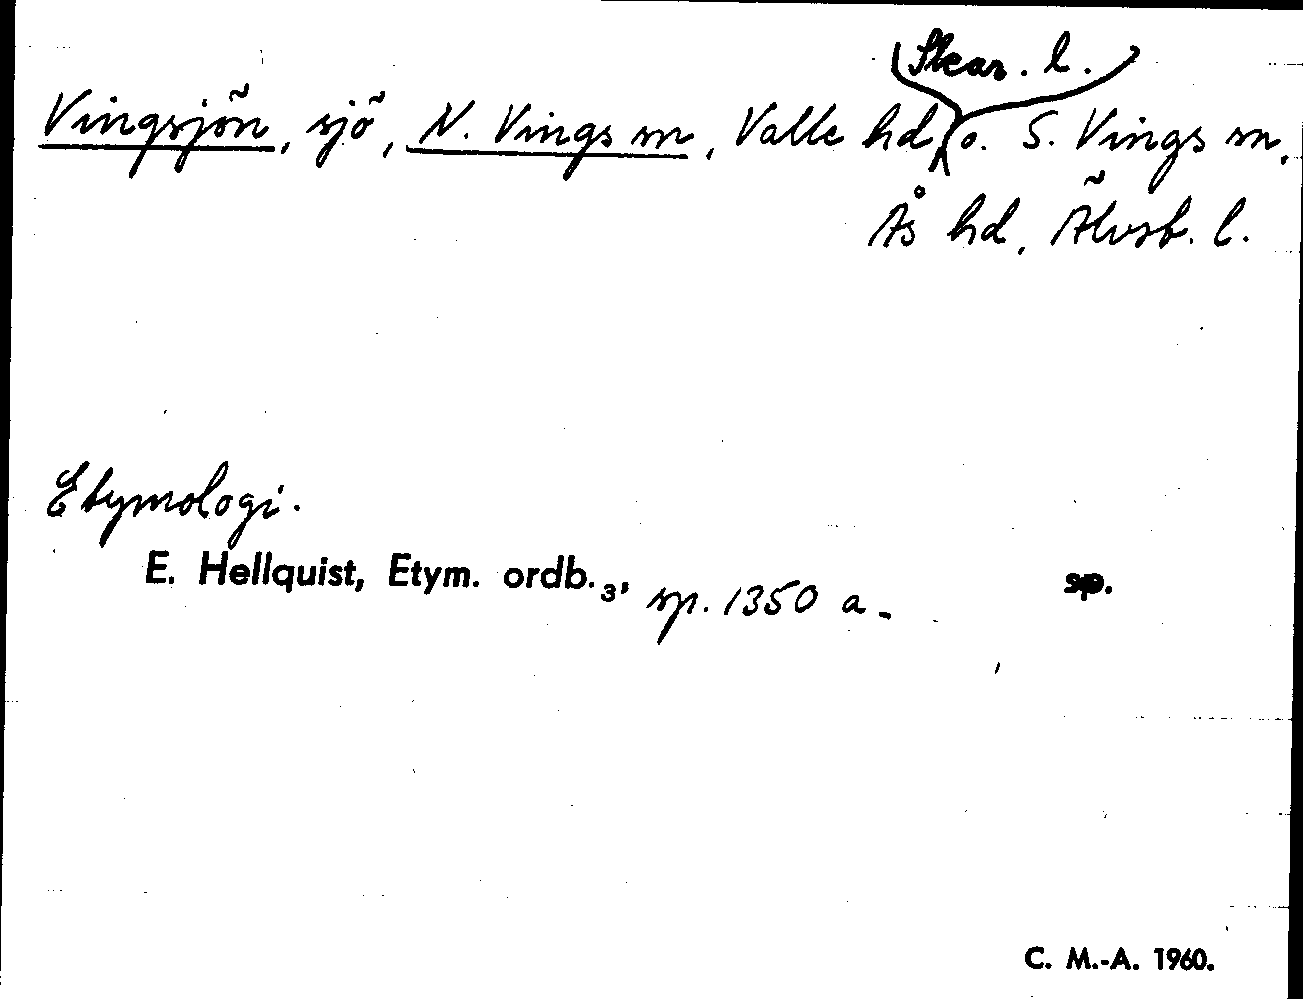 Skar. l.
Vingsjön, sjö, N. Vings sn, Valle hd, o. S. Vings sn,
Ås hd, Älvsb. l.
Etymologi.
E. Hellquist, Etym. ordb.₃, sp. 1350 a. sp.
C. M.-A. 1960.